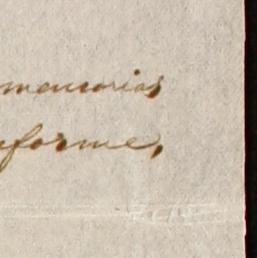 memorias
nforme,